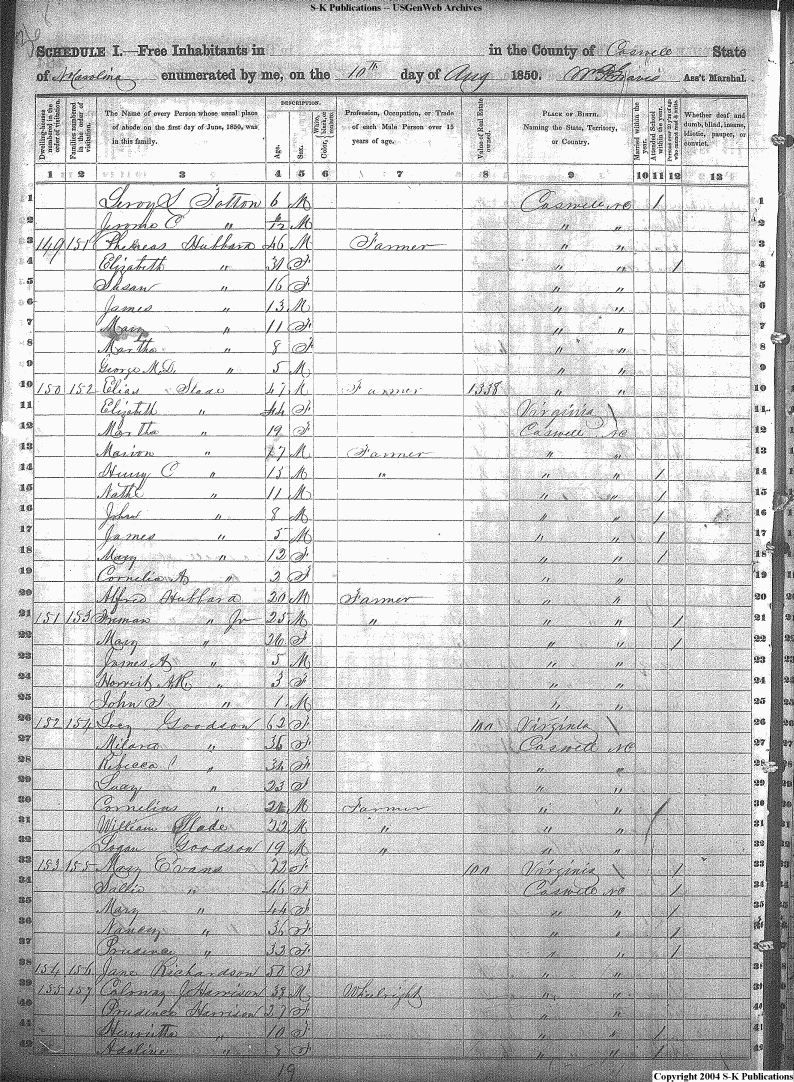 S-K Publications -- USGenWeb Archives
SCHEDULE I.—Free Inhabitants in in the County of Caswell State
of N Carolina enumerated by me, on the 10th day of Aug 1850. Ass't Marshal.
Dwelling-houses numbered in the order of visitation. Families numbered in the order of visitation. The Name of every Person whose usual place of abode on the first day of June, 1850, was in this family. DESCRIPTION. Age. Sex. Color, White, black, or mulatto. Profession, Occupation, or Trade of each Male Person over 15 years of age. Value of Real Estate owned. PLACE OF BIRTH. Naming the State, Territory, or Country. Married within the year. Attended School within the year. Persons over 20 y'rs of age who cannot read & write. Whether deaf and dumb, blind, insane, idiotic, pauper, or convict.
1 2 3 4 5 6 7 8 9 10 11 12 13
1 Leroy S Totton 6 M Caswell NC / 1
2 Jerome C " 6/12 M " " 2
3 149 151 Hubbard 46 M Farmer " " 3
4 Elizabeth " F " " / 4
5 Susan " 16 F " " 5
6 James " 13 M " " 6
7 Mary " 11 F " " 7
8 Martha " 8 F " " 8
9 George M.D. " 5 M " " 9
10 150 152 Elias Slade 47 M Farmer 1338 " " 10
11 Elizabeth " 44 F Virginia \ 11
12 Martha " 19 F Caswell NC 12
13 Marion " 17 M Farmer " " 13
14 Henry C " 15 M " " " / 14
15 Nathl " 11 M " " / 15
16 John " 8 M " " / 16
17 James " 5 M " " / 17
18 Mary " 12 F " " / 18
19 Cornelia A " 2 F " " 19
20 Alfred Hubbard 20 M Farmer " " 20
21 151 153 " Jr 25 M " " " / 21
22 Mary " 26 F " " / 22
23 James A " 5 M " " 23
24 " 3 F " " 24
25 John T " 1 M " " 25
26 152 154 Goodson 62 F 100 Virginia \ 26
27 " 36 F Caswell NC 27
28 Rebecca " 34 F " " 28
29 Lucy " 23 F " " 29
30 Cornelius " 21 M Farmer " " / 30
31 William Slade 22 M " " " / 31
32 Logan Goodson 19 M " " " 32
33 153 155 Mary Evans 72 F 100 Virginia \ / 33
34 Sallie " 46 F Caswell NC / 34
35 Mary " 44 F " " / 35
36 Nancy " 36 F " " / 36
37 Prudence " 32 F " " / 37
38 154 156 Jane Richardson 50 F " " 38
39 155 157 Calaway J Harrison 33 M Wheelright " " 39
40 Prudence Harrison 27 F " " 40
41 Henrietta " 10 F " " / 41
42 Adaline " F " " / 42
19
Copyright 2004 S-K Publications